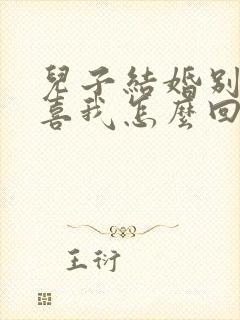 兒子結婚別
喜我怎麼回
王衍